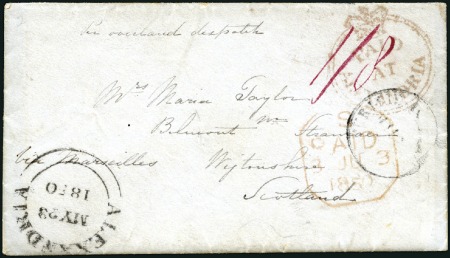 per overland despatch
1/8
PAID
AT
Mrs Maria Taylor
Belmont nr Stranraer
via Marseilles Wigtonshire
Scotland
PAID
JU 3
1850
ALEXANDRIA
MY 23
1850